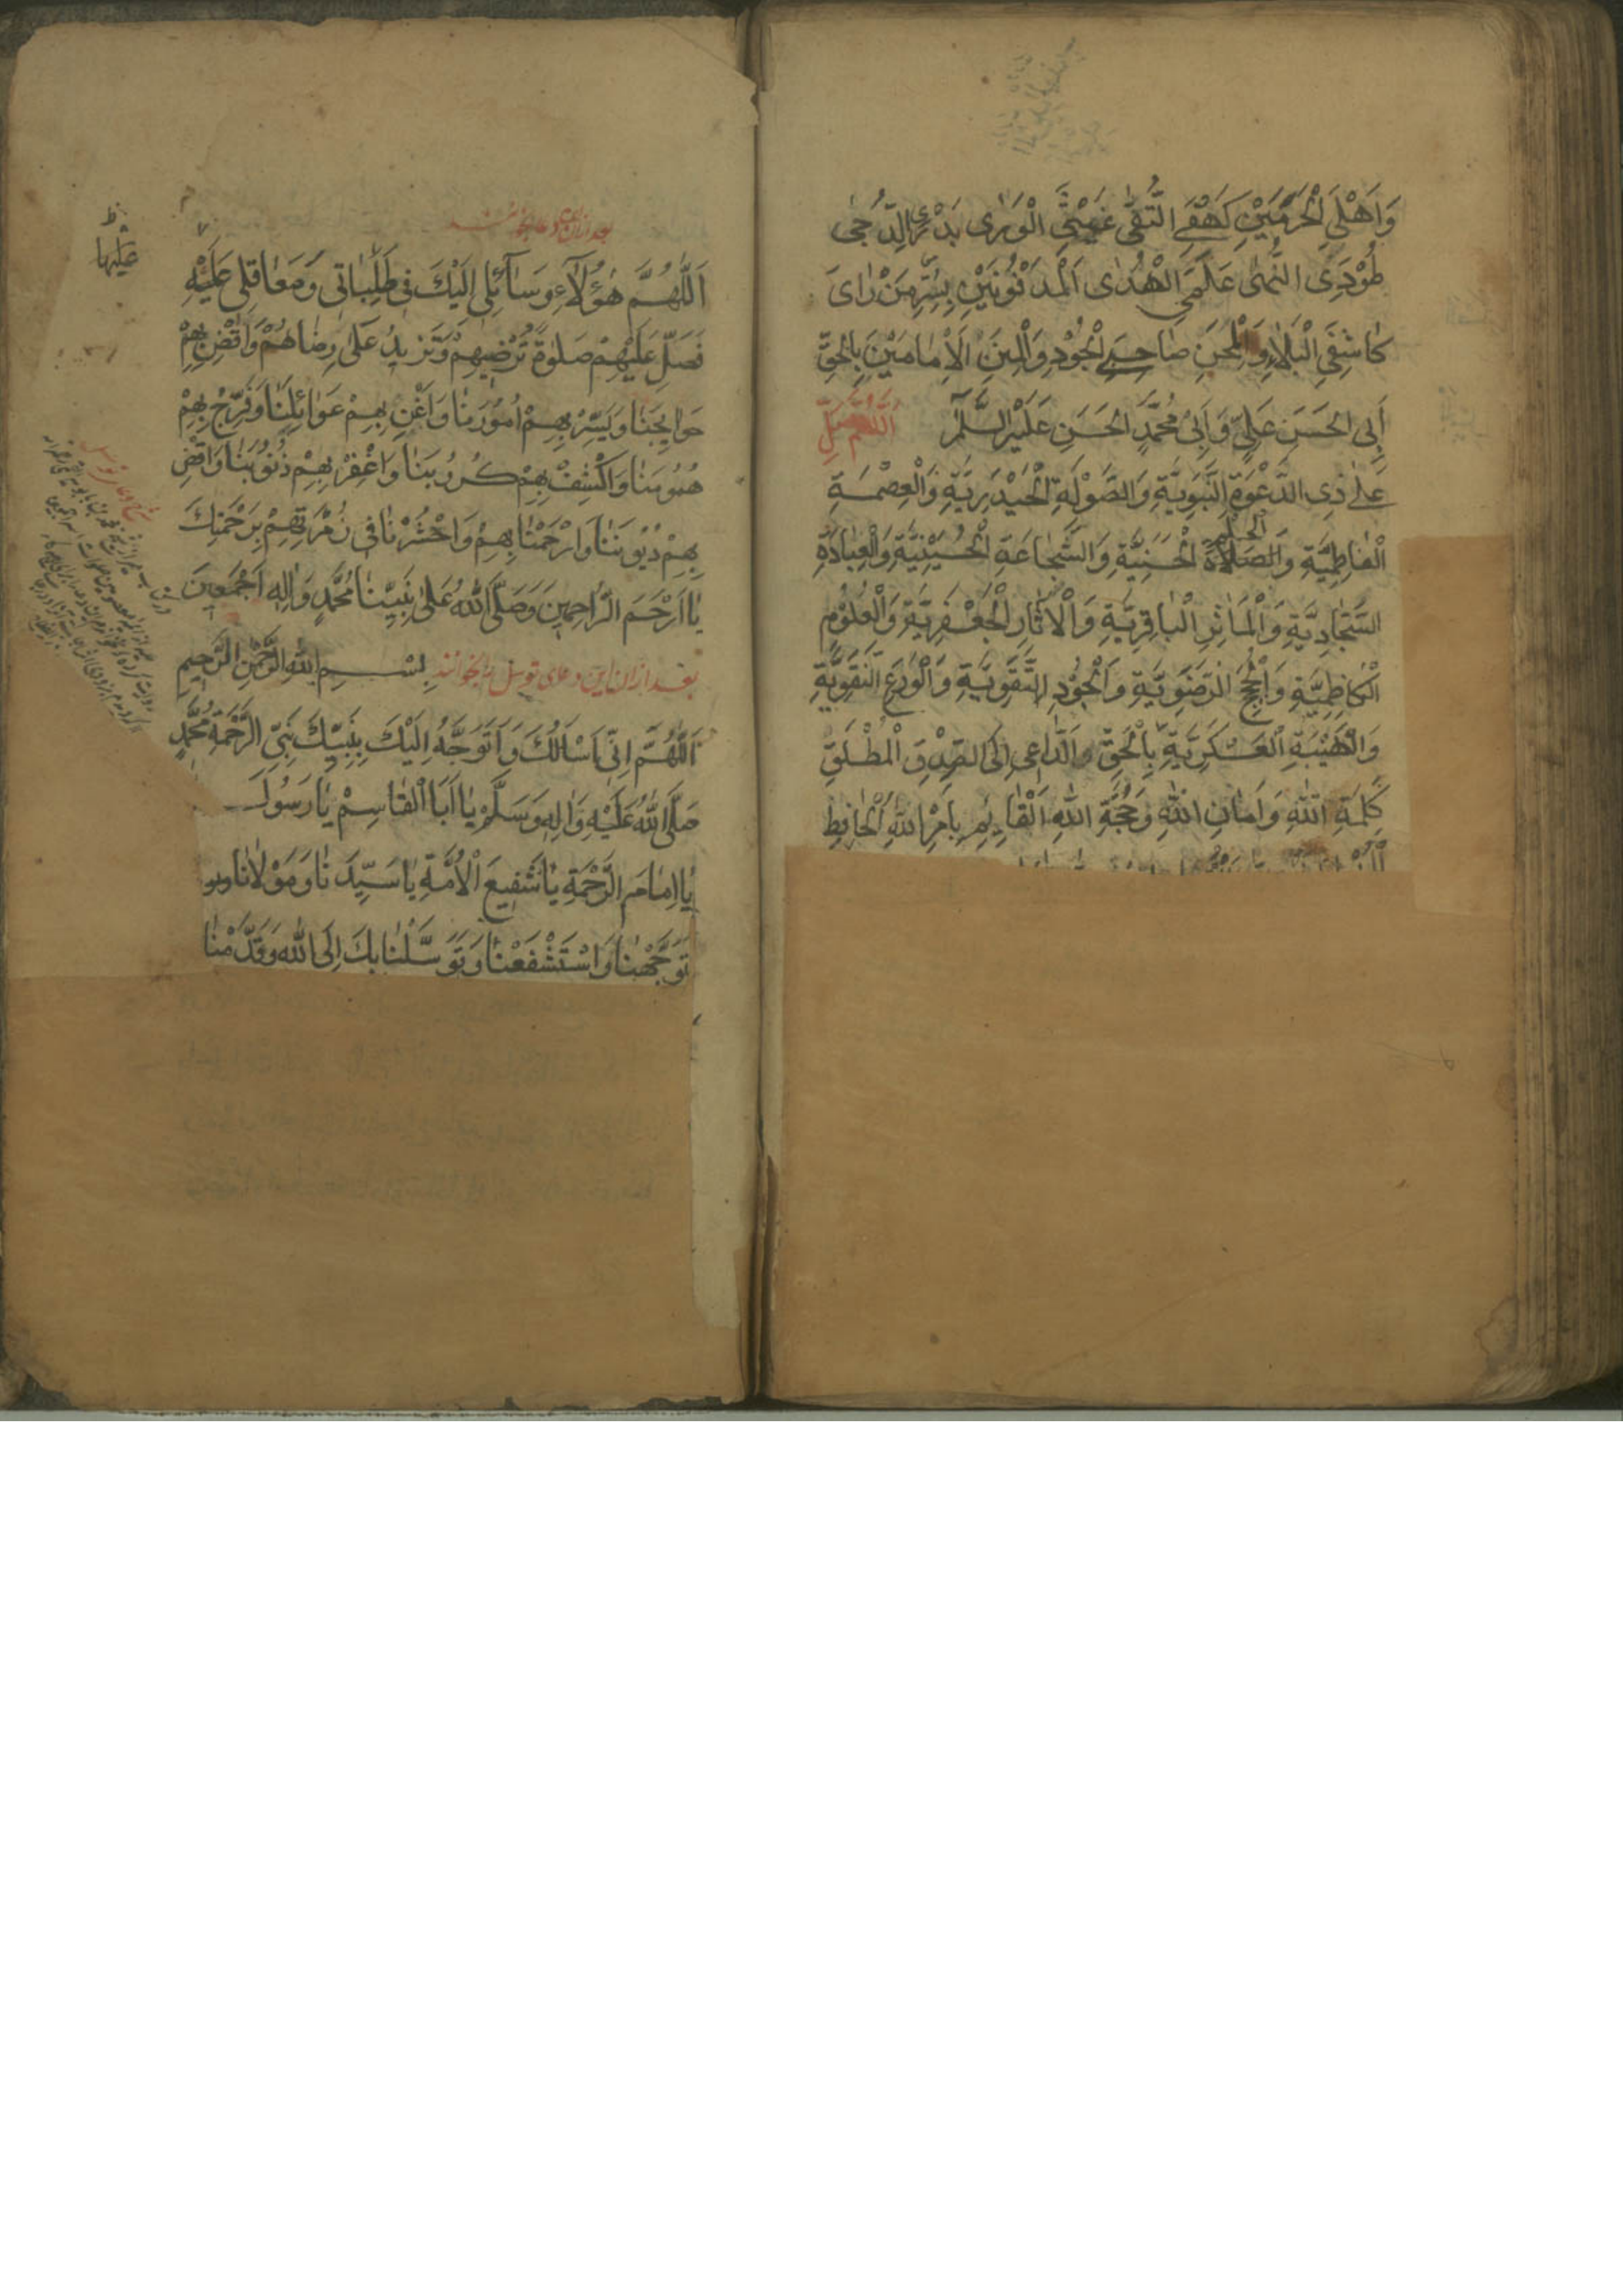 وَاَهْلَيِ الْحَرَمَيْنِ كَهْفَيِ التُّقٰى غَوْثَيِ الْوَرٰى بَدْرَيِ الدُّجٰى
طَوْدَيِ النُّهٰى عَلَمَيِ الْهُدٰى اَلْمَدْفُونَيْنِ بِسُرَّ مَنْ رَاٰى
كَاشِفَيِ الْبَلَاءِ وَالْمِحَنِ صَاحِبَيِ الْجُوْدِ وَالْمِنَنِ الْاِمَامَيْنِ بِالْحَقِّ
اَبِى الْحَسَنِ عَلِيٍّ وَاَبِى مُحَمَّدٍ الْحَسَنِ عَلَيْهِ السَّلَام اَللّٰهُمَّ صَلِّ
عَلٰى ذِى الدَّعْوَةِ النَّبَوِيَّةِ وَالصَّوْلَةِ الْحَيْدَرِيَّةِ وَالْعِصْمَةِ
الْفَاطِمِيَّةِ وَالصَّلَابَةِ الْحَسَنِيَّةِ وَالشَّجَاعَةِ الْحُسَيْنِيَّةِ وَالْعِبَادَةِ
السَّجَّادِيَّةِ وَالْمَاٰثِرِ الْبَاقِرِيَّةِ وَالْاٰثَارِ الْجَعْفَرِيَّةِ وَالْعُلُوْمِ
الْكَاظِمِيَّةِ وَالْحُجَجِ الرَّضَوِيَّةِ وَالْجُوْدِ التَّقَوِيَّةِ وَالْوَرَعِ النَّقَوِيَّةِ
وَالْهَيْبَةِ الْعَسْكَرِيَّةِ بِالْحَقِّ وَالدَّاعِى اِلَى الصِّدْقِ الْمُطْلَقِ
كَلِمَةِ اللّٰهِ وَاَمَانِ اللّٰهِ وَحُجَّةِ اللّٰهِ اَلْقَائِمِ بِاَمْرِ اللّٰهِ الْحَافِظِ
بعد ازان این دعا بخوانند
اَللّٰهُمَّ هٰؤُلَاءِ وَسَائِلِى اِلَيْكَ فِى طَلِبَاتِى وَمَعَاقِلِى عَلَيْهِ
فَصَلِّ عَلَيْهِمْ صَلٰوةً تُرْضِيهِمْ وَتَزِيدُ عَلٰى رِضَاهُمْ وَاقْضِ بِهِمْ
حَوَايِجَنَا وَيَسِّرْ بِهِمْ اُمُوْرَنَا وَاَغْنِ بِهِمْ عَوَائِلَنَا وَفَرِّجْ بِهِمْ
هُمُوْمَنَا وَاكْشِفْ بِهِمْ كُرُوْبَنَا وَاغْفِرْ بِهِمْ ذُنُوْبَنَا وَاقْضِ
بِهِمْ دُيُوْنَنَا وَارْحَمْنَا بِهِمْ وَاحْشُرْنَا فِى زُمْرَتِهِمْ بِرَحْمَتِكَ
يَا اَرْحَمَ الرَّاحِمِينَ وَصَلَّى اللّٰهُ عَلٰى نَبِيِّنَا مُحَمَّدٍ وَاٰلِهِ اَجْمَعِينَ
بعد ازان این دعای توسل را بخوانند بِسْمِ اللّٰهِ الرَّحْمٰنِ الرَّحِيمِ
اَللّٰهُمَّ اِنِّى اَسْاَلُكَ وَاَتَوَجَّهُ اِلَيْكَ بِنَبِيِّكَ نَبِيِّ الرَّحْمَةِ مُحَمَّدٍ
صَلَّى اللّٰهُ عَلَيْهِ وَاٰلِهِ وَسَلَّمْ يَا اَبَا الْقَاسِمْ يَا رَسُولَ
يَا اِمَامَ الرَّحْمَةِ يَا شَفِيعَ الْاُمَّةِ يَا سَيِّدَنَا وَمَوْلَانَا
تَوَجَّهْنَا وَاسْتَشْفَعْنَا وَتَوَسَّلْنَا بِكَ اِلَى اللّٰهِ وَقَدَّمْنَا
عليها